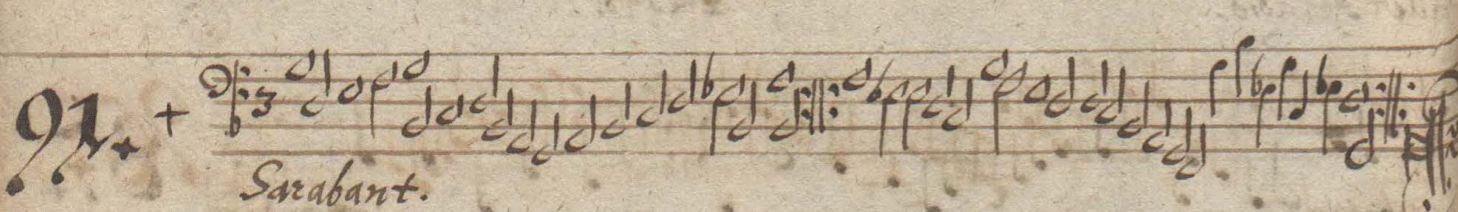 91. +
3
Sarabant.